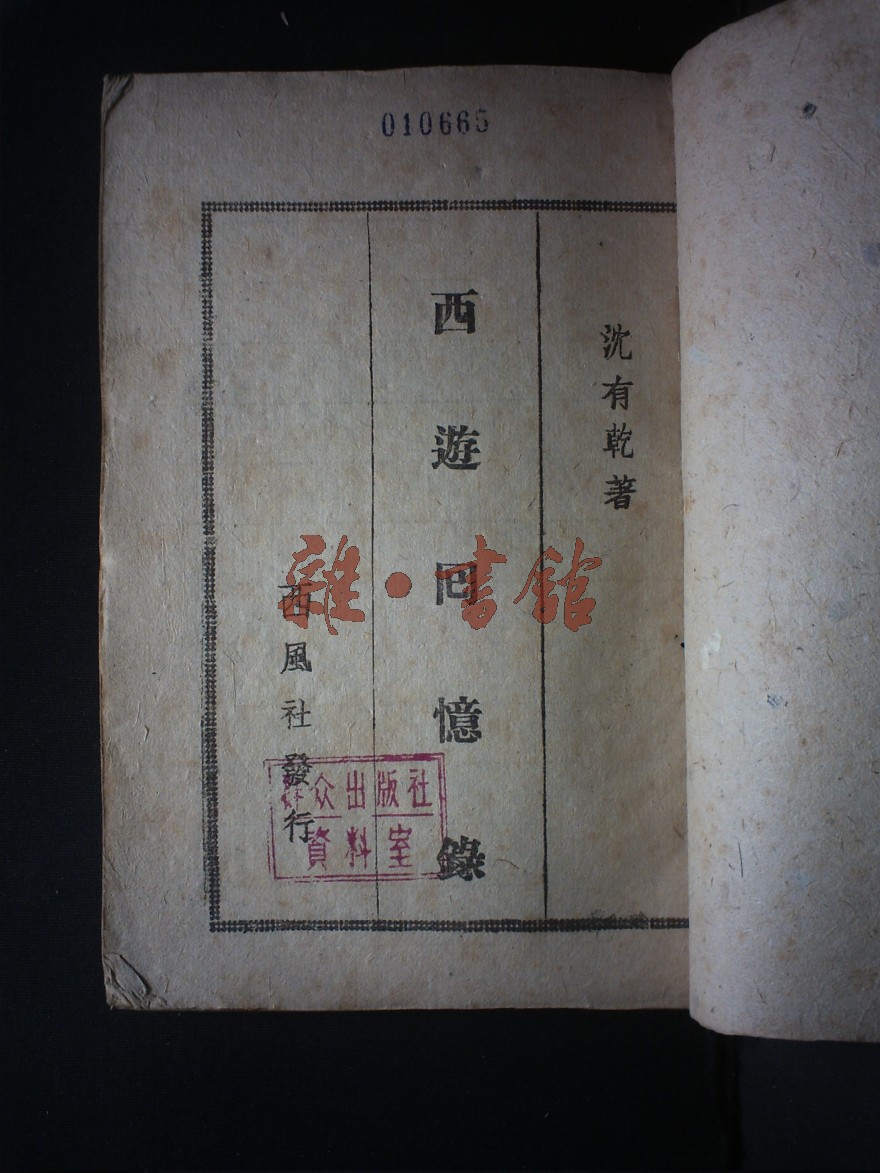 010665
沈有乾著
西遊回憶錄
西風社發行
雜·書館
群众出版社
資料室